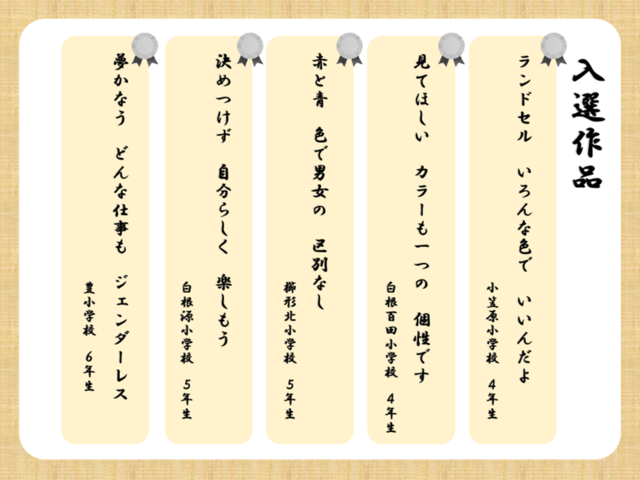 入選作品
ランドセル　いろんな色で　いいんだよ
小笠原小学校　4年生
見てほしい　カラーも一つの　個性です
白根百田小学校　4年生
赤と青　色で男女の　区別なし
櫛形北小学校　5年生
決めつけず　自分らしく　楽しもう
白根源小学校　5年生
夢かなう　どんな仕事も　ジェンダーレス
豊小学校　6年生